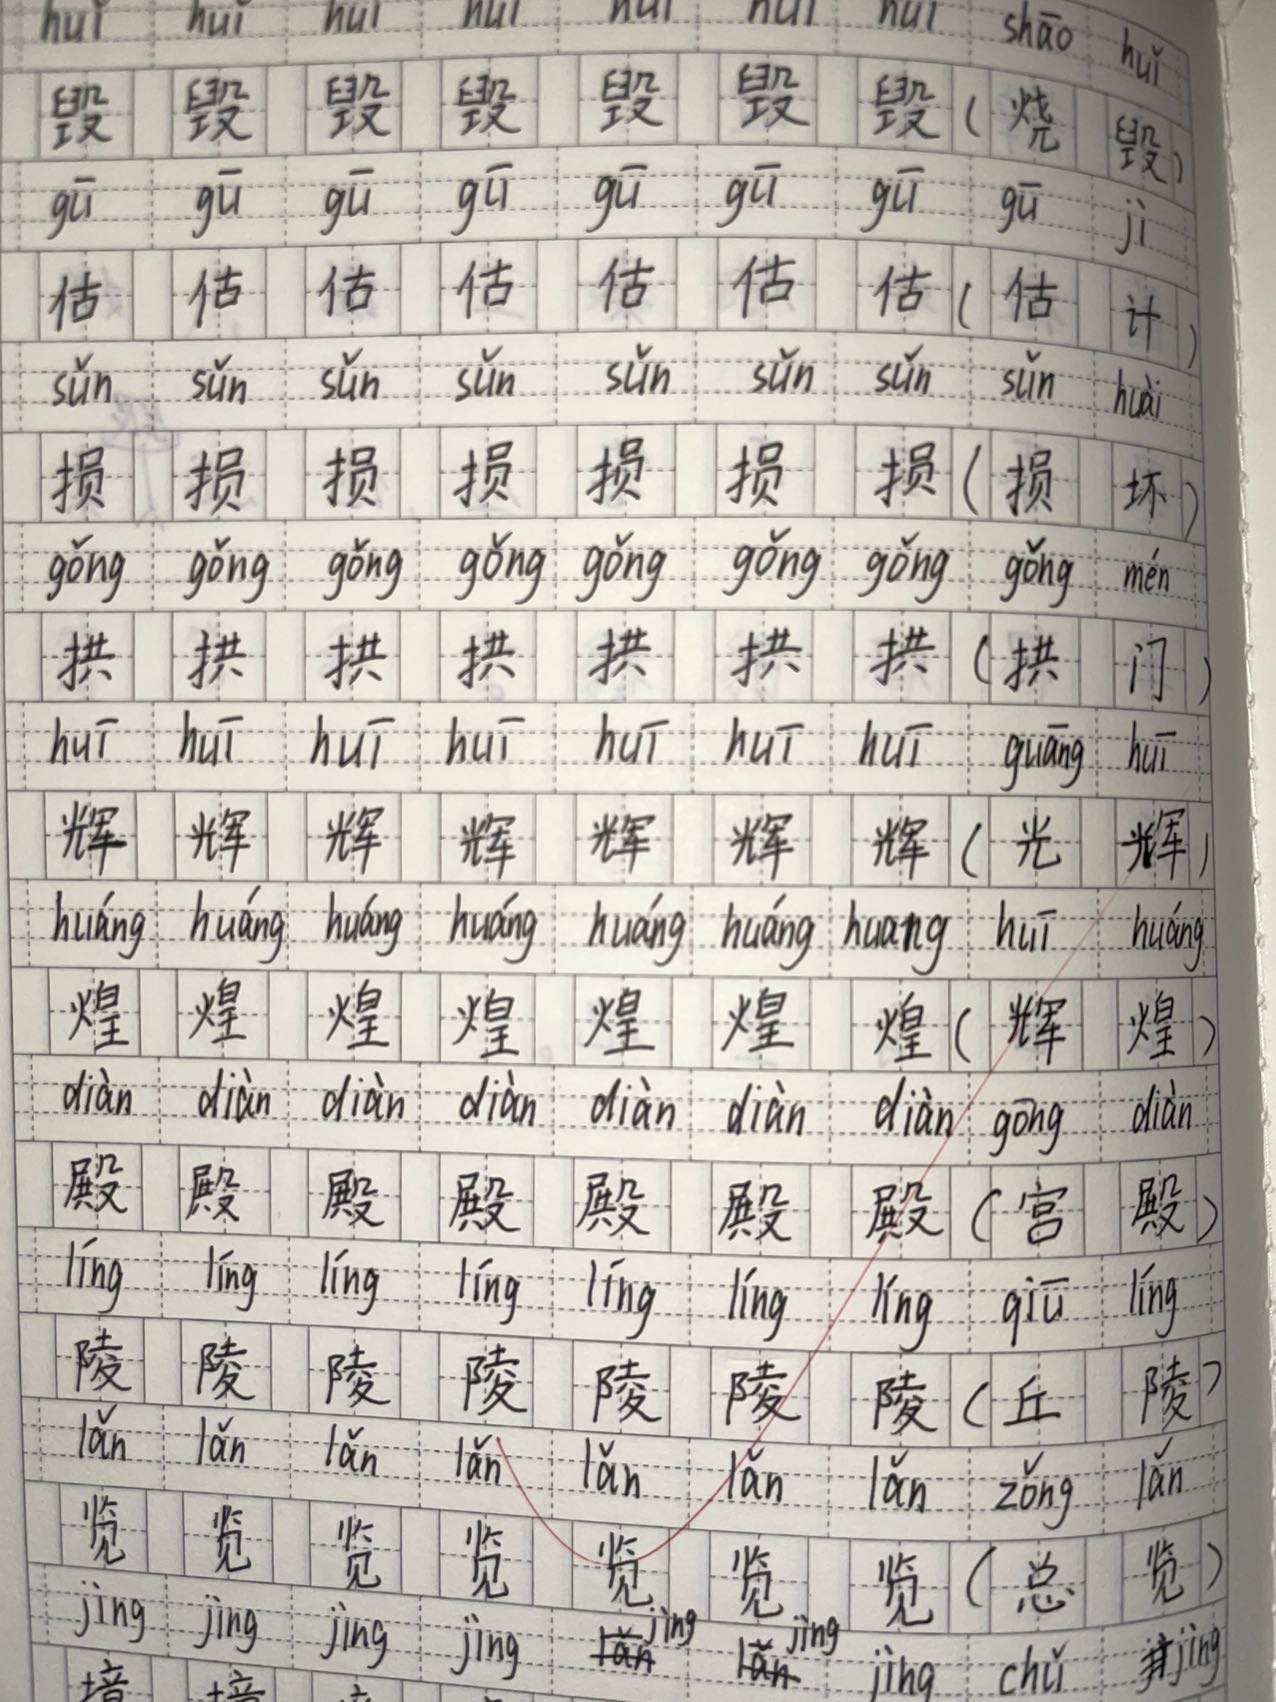 huǐ huǐ huǐ huǐ huǐ huǐ huǐ shāo huǐ
毁 毁 毁 毁 毁 毁 毁 ( 烧 毁 )
gū gū gū gū gū gū gū gū jì
估 估 估 估 估 估 估 ( 估 计 )
sǔn sǔn sǔn sǔn sǔn sǔn sǔn sǔn huài
损 损 损 损 损 损 损 ( 损 坏 )
gǒng gǒng gǒng gǒng gǒng gǒng gǒng gǒng mén
拱 拱 拱 拱 拱 拱 拱 ( 拱 门 )
huī huī huī huī huī huī huī guāng huī
辉 辉 辉 辉 辉 辉 辉 ( 光 辉 )
huáng huáng huáng huáng huáng huáng huang huī huáng
煌 煌 煌 煌 煌 煌 煌 ( 辉 煌 )
diàn diàn diàn diàn diàn diàn diàn gōng diàn
殿 殿 殿 殿 殿 殿 殿 ( 宫 殿 )
líng líng líng líng líng líng líng qiū líng
陵 陵 陵 陵 陵 陵 陵 ( 丘 陵 )
lǎn lǎn lǎn lǎn lǎn lǎn lǎn zǒng lǎn
览 览 览 览 览 览 览 ( 总 览 )
jìng jìng jìng jìng jìng jìng jìng chǔ jìng
境 境